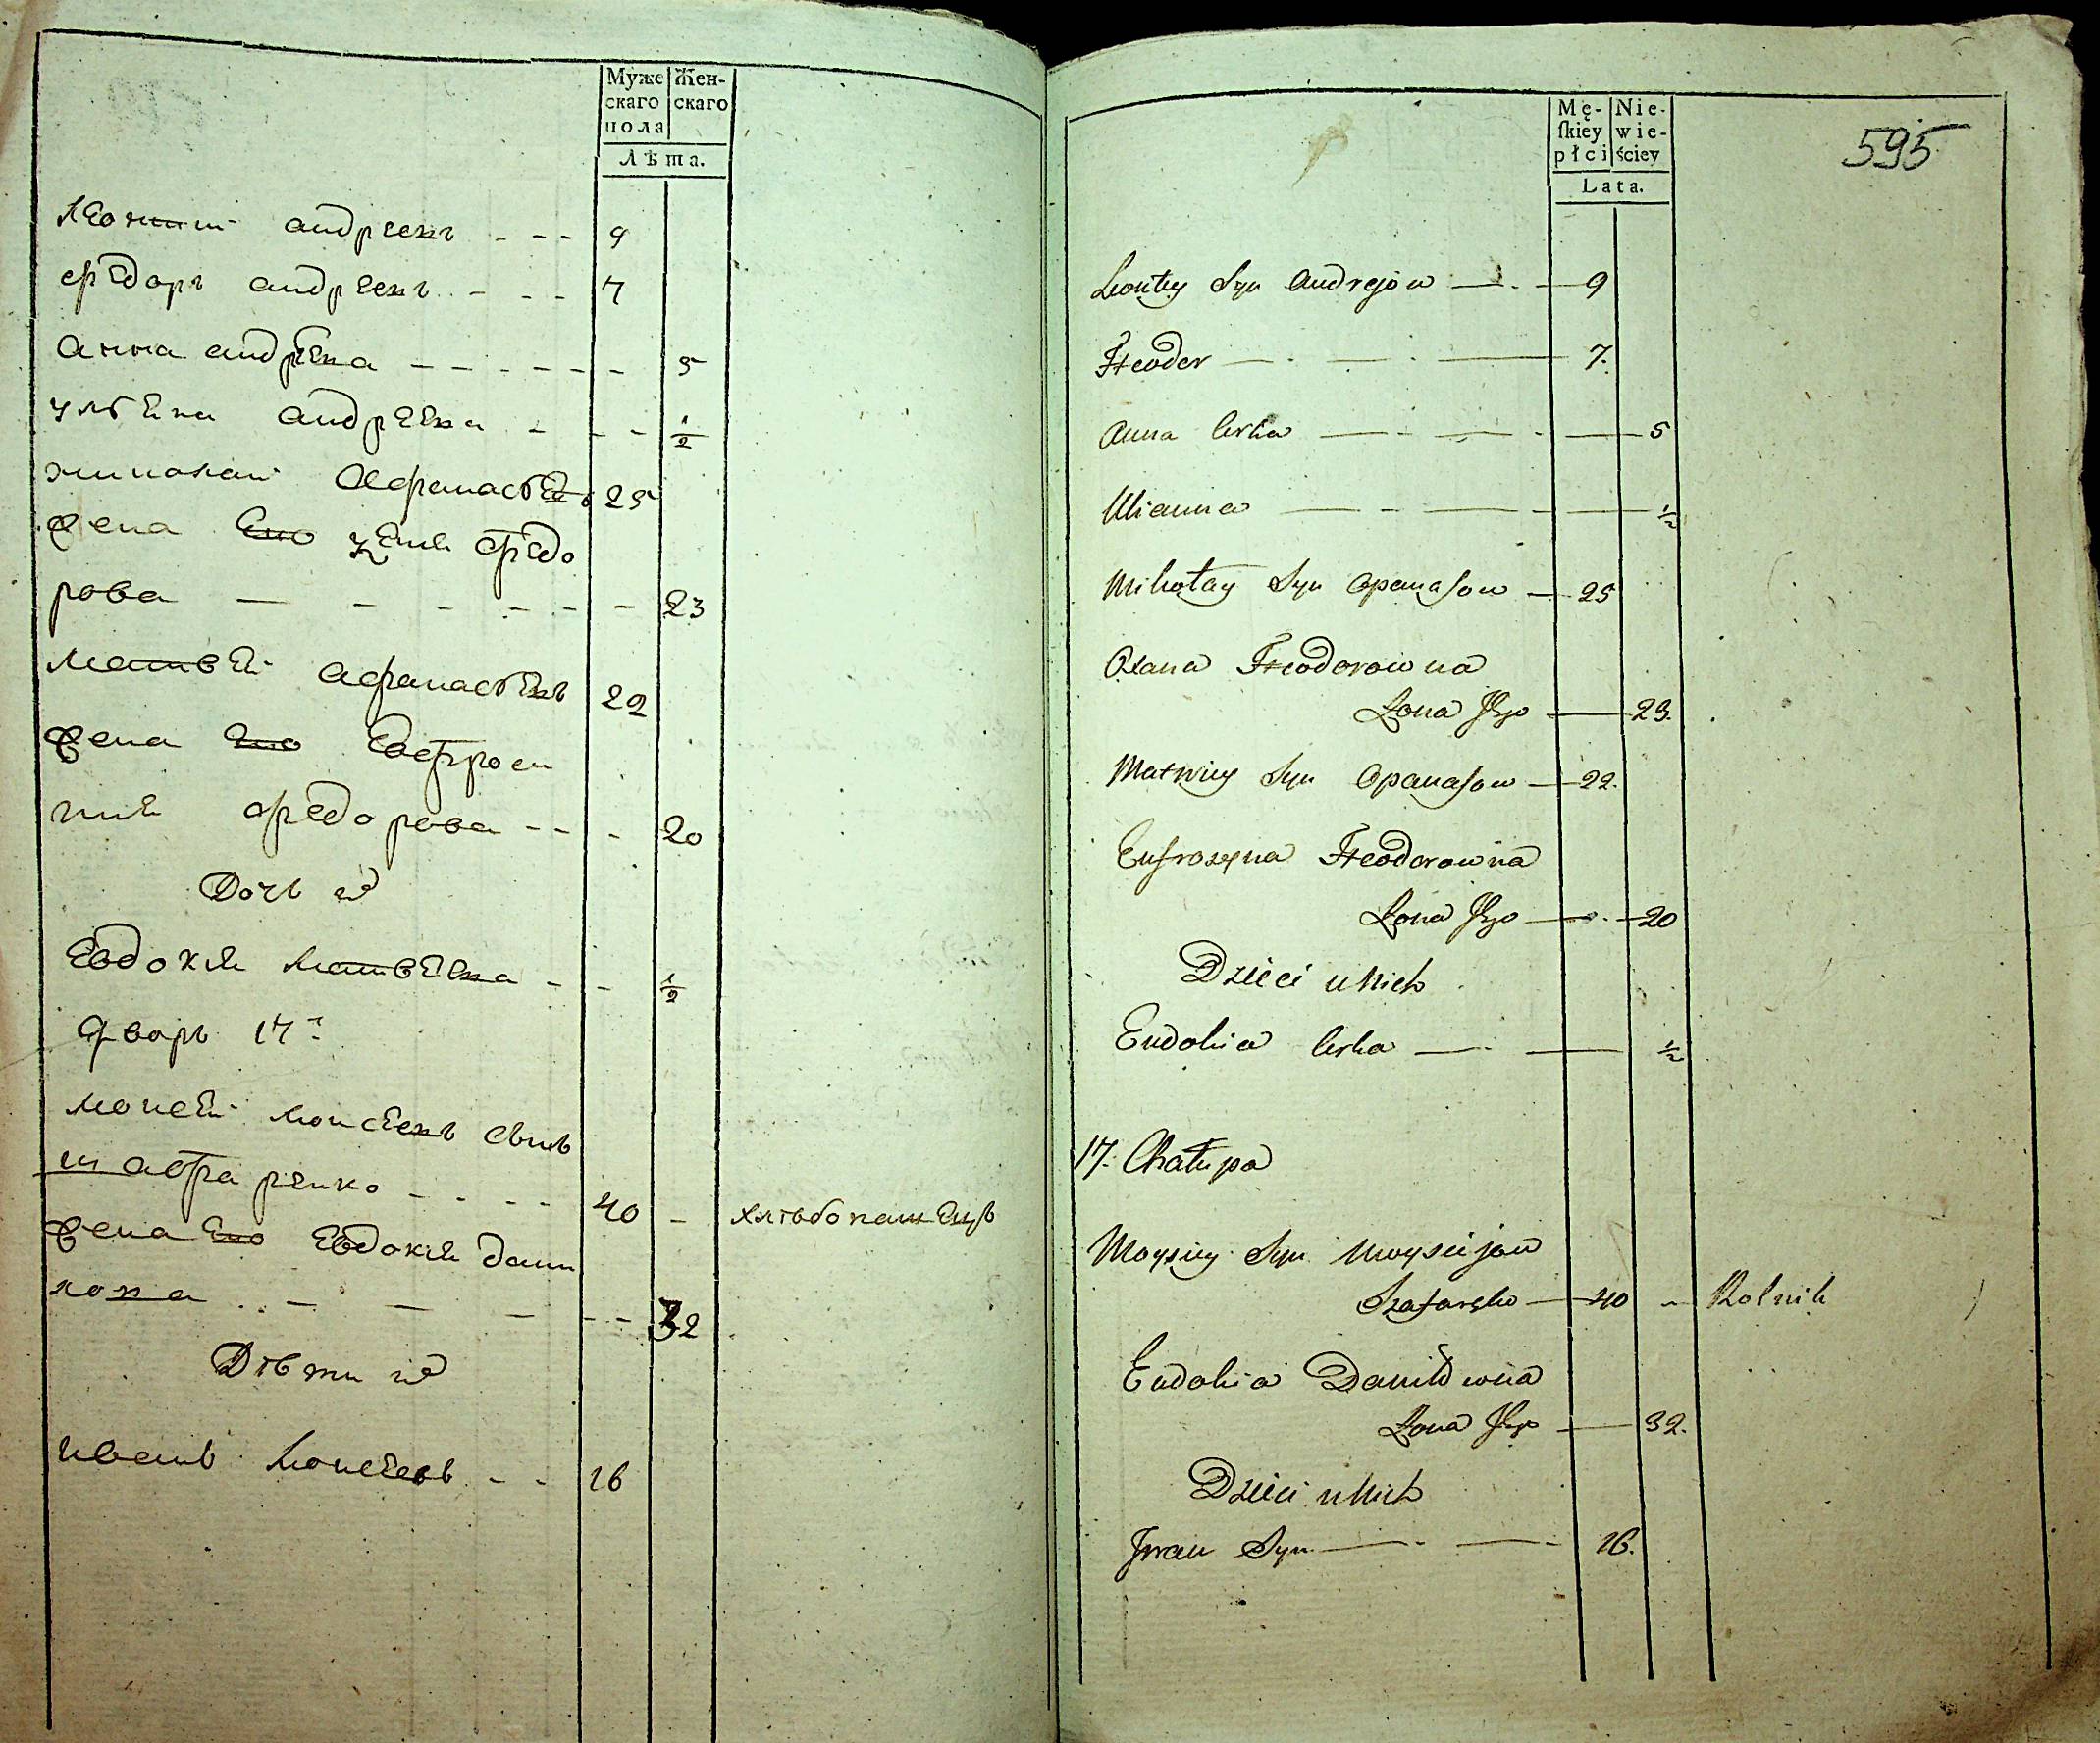 Муже
скаго
пола
Жен-
скаго
Лѣта.
Леонтий андреевъ - - - 9
фѣдоръ андреевъ - - - 7
Анна андрѣева - - - - - - 5
ульѣна андрѣева - - - 1/2
николай Афанасьевъ 25
жена Его фѣдо
рова - - - - - - 23
матвѣй афанасьевъ 22
жена Его Евфроси
ниѣ фѣдорова - - - 20
Дочь
Евдокиѣ матвѣева - - 1/2
дворъ 17й
мосей моисеевъ сынъ
40 - хлѣбопашецъ
жена Его Евдокиѣ дани
лова - - - - - 32
Дѣти
иванъ мосеевъ - - 16
Mę-
ſkiey
płci
Nie-
wie-
ściey
Lata.
595
Leontey Syn Andrejow — 9
Fteodor — 7.
Anna Corka — 5
Ulianna — 1/2
Mikołay Syn Opanasow — 25
Fteodorowna
Żona Jego — 23.
Matwiey Syn Opanasow — 22.
Eufrozyna Fteodorowna
Żona Jego — 20
Dzieci u Nich
Eudokia Corka — 1/2
17. Chałupa
Moysiey Syn Moysiejow
40 - Rolnik
Eudokia Daniłowna
Żona Jego — 32.
Dzieci u Nich
Jwan Syn — 16.